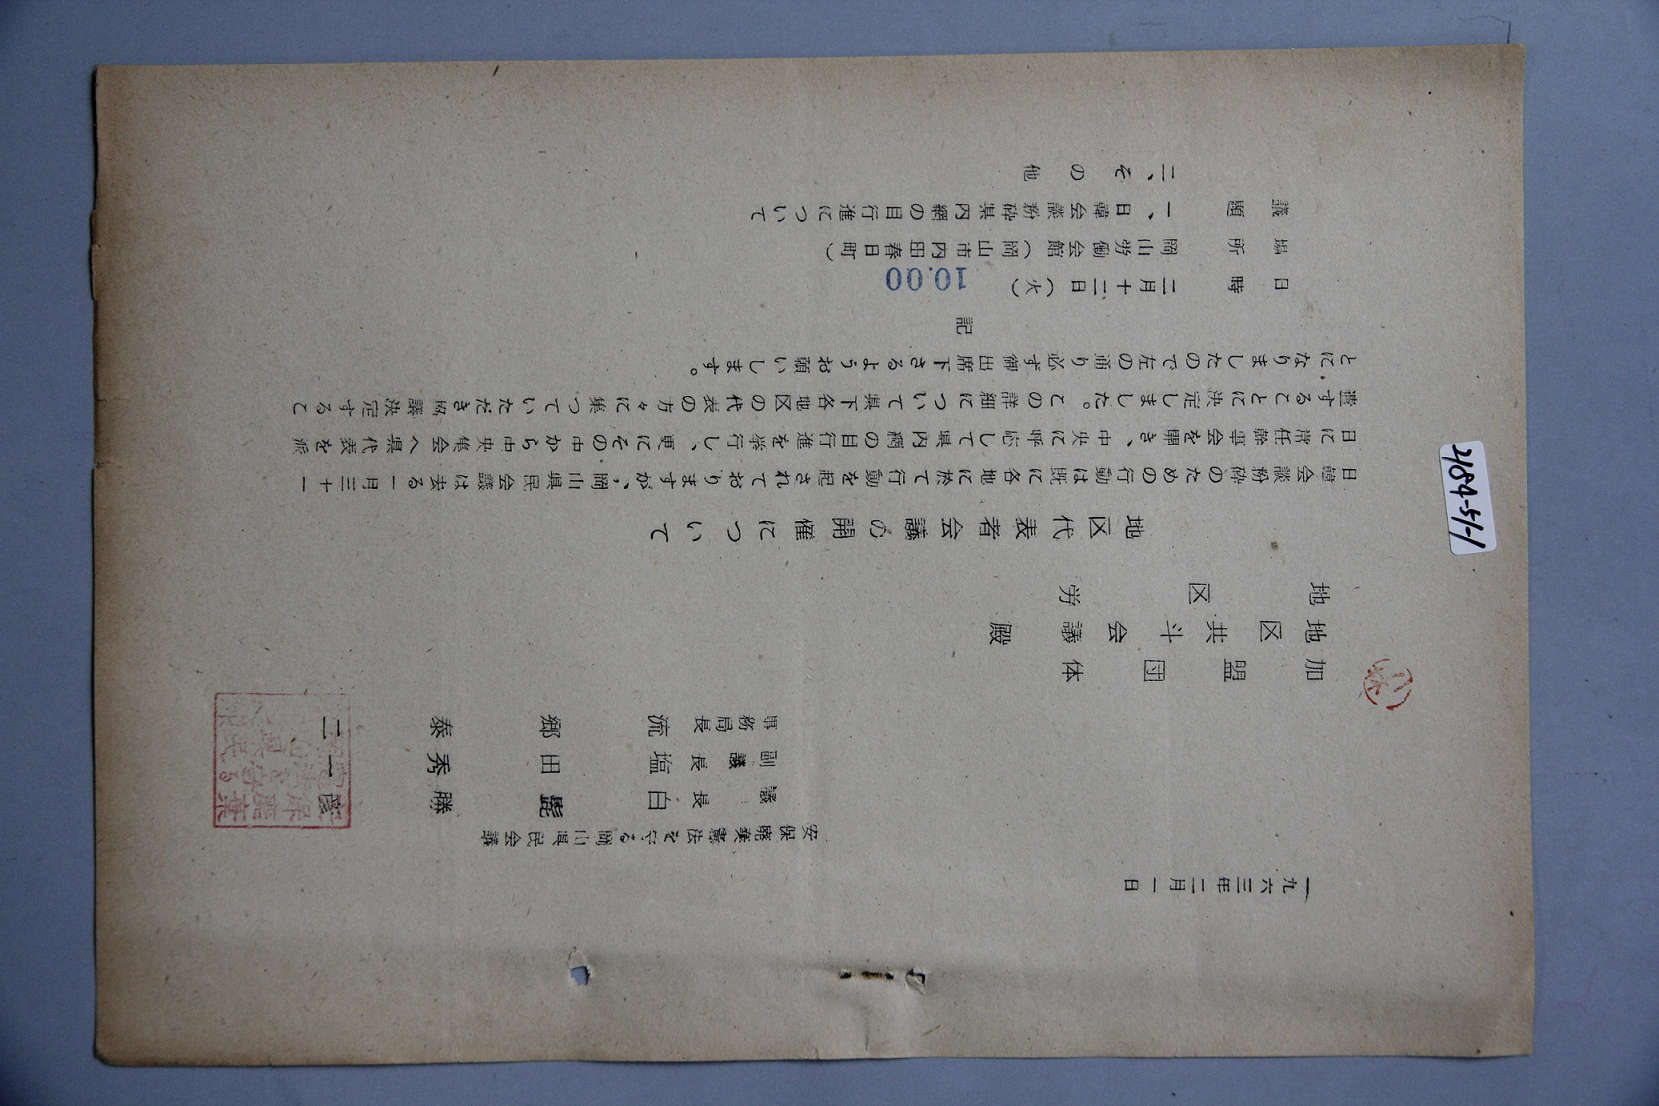 一九六三年二月一日
安保廃棄憲法を守る岡山県民会議
議長 白髭勝
副議長 塩田秀一
事務局長 流郷泰二
加盟団体
地区共斗会議 殿
地区労
地区代表者会議の開催について
日韓会談粉砕のための行動は既に各地に於て行動を起されておりますが、岡山県民会議は去る一月三十一
日に常任幹事会を開き、中央に呼応して県内網の目行進を挙行し、更にその中から中央集会へ県代表を派
遣することに決定しました。この詳細について県下各地区の代表の方々に集っていただき協議決定するこ
とになりましたので左の通り必ず御出席下さるようお願いします。
記
日時 二月十二日(火) 10.00
場所 岡山労働会館(岡山市内田春日町)
議題 一、日韓会談粉砕県内網の目行進について
二、その他
489-51-1